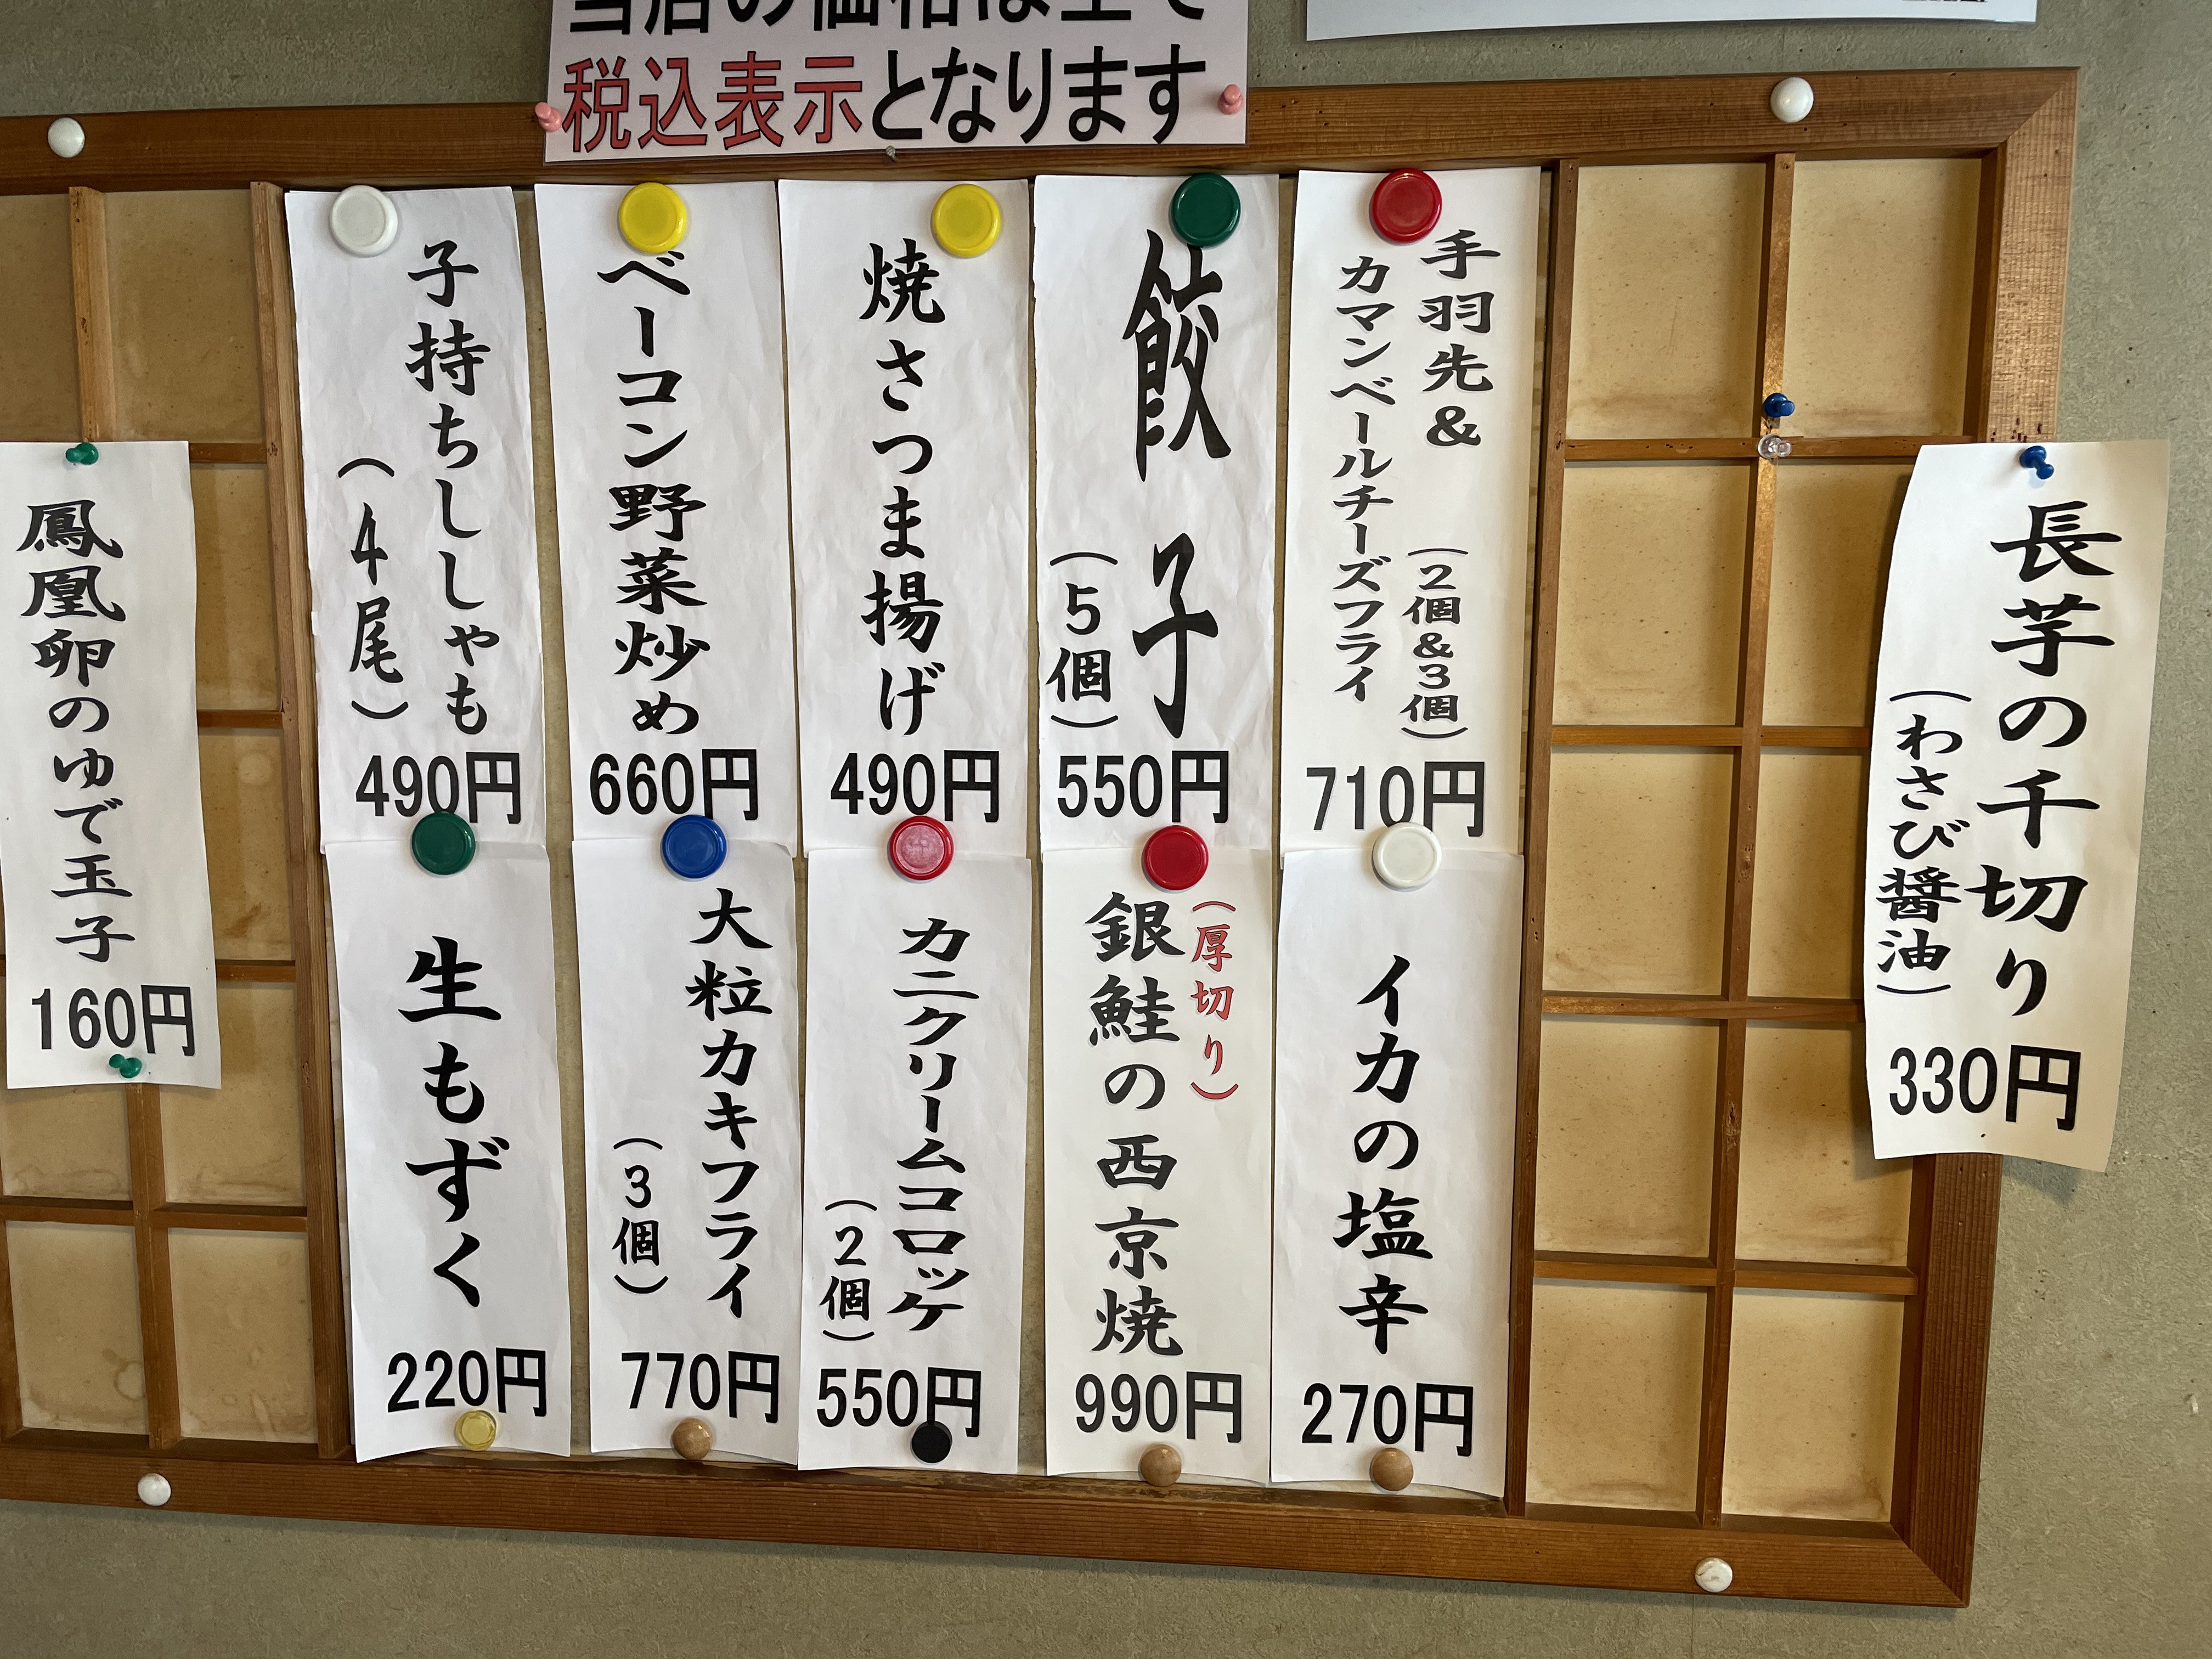 当店の価格は全て
税込表示となります
長芋の千切り
（わさび醤油）
330円
手羽先&
カマンベールチーズフライ
（2個&3個）
710円
餃子
（5個）
550円
焼さつま揚げ
490円
ベーコン野菜炒め
660円
子持ちししゃも
（4尾）
490円
イカの塩辛
270円
（厚切り）
銀鮭の西京焼
990円
カニクリームコロッケ
（2個）
550円
大粒カキフライ
（3個）
770円
生もずく
220円
鳳凰卵のゆで玉子
160円